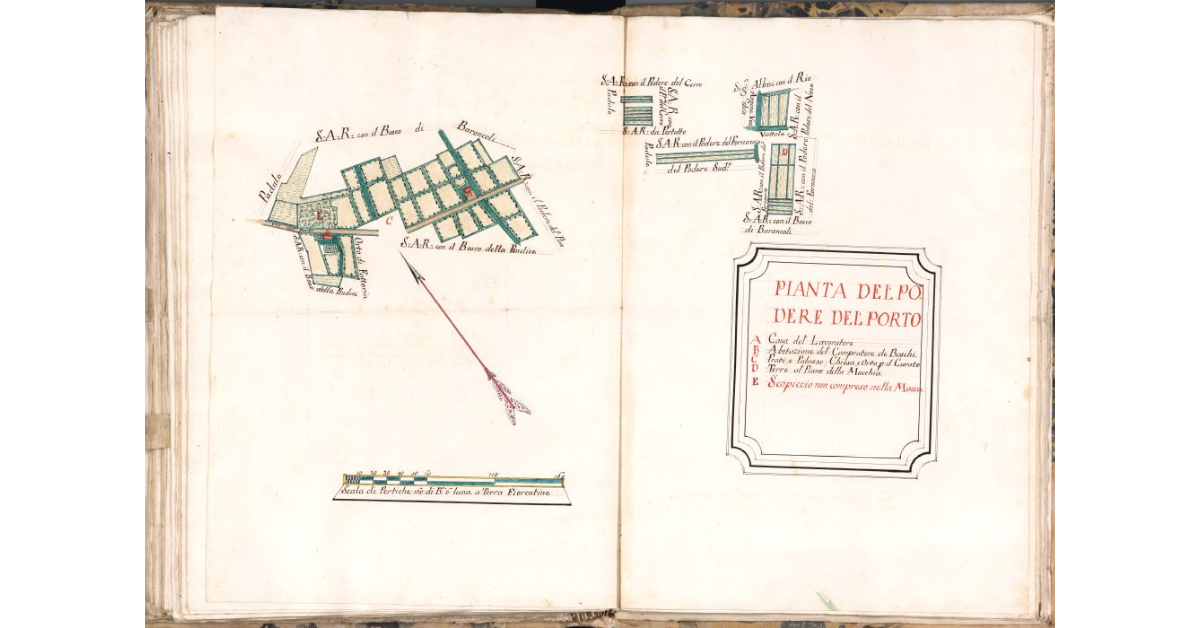 S.A.R: con il Bosco di Baroncoli
Padule
S.A.R. con il Podere del Por
E
C
S.A.R: con il Bosco della Pendice
Orto di Fattoria
S.A.R: con il Bosco
della Pendice
10 20 30 40 50 60 110 160
Scala di Pertiche 160 di Ba 6 luna a Terra Fiorentina
S.A.R. con il Podere del Cerro
Padule
S.A.R. con
S.A.R: da Pertotto
Albizi con il Rio
Viottola
S.A.R: con il
Podere del Noce
S.A.R. con il Podere del Fornacce
Padule
del Podere Sud.o
D
S.A.R: con il Podere
del Fornacce
S.A.R: con il Bosco
di Baroncoli
PIANTA DEL PO
DERE DEL PORTO
A Casa del Lavoratore
B Abitazione del Compratore de Boschi
C Prati, e Palazzo, Chiesa, e Orto p. il Curato
D Terre al Piano della Macchia
E Scopiccio non compreso nella Massa